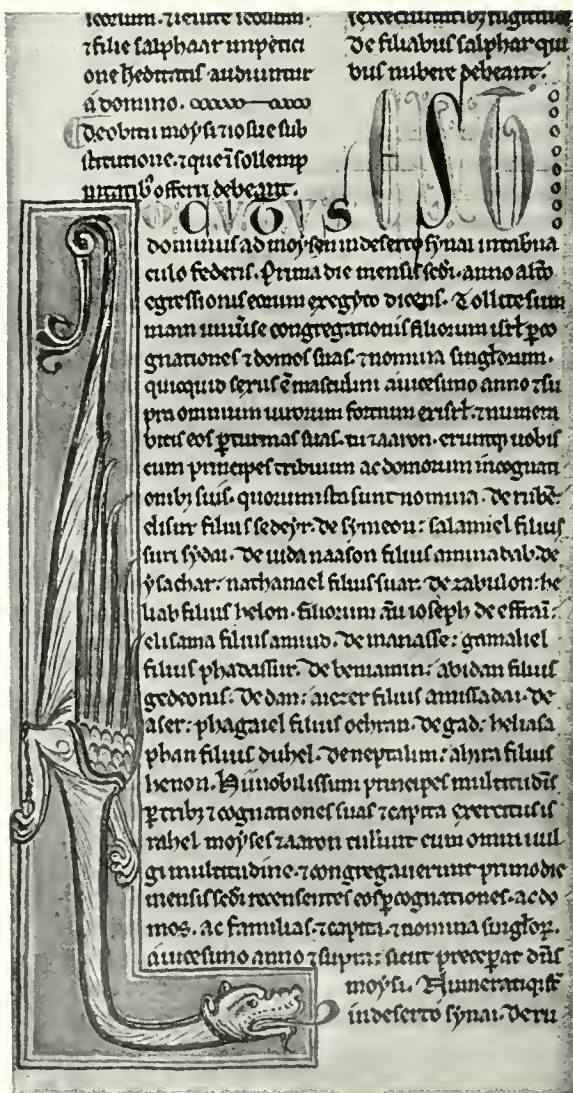 ⁊ filie salphaar inpetici
one heditatis audiuntur
a domino.
De obitu moysi ⁊ iosue sub
stitutione. ⁊ que ĩ sollemp
nitatibꝰ offerri debeant.
De filiabus salphar qui
bus nubere debeant.
LOCVTVS EST
dominus ad moysen in deserto synai in tab̃na
culo federis. Prima die mensis sc̃di. anno alt̃o
egressionis eorum ex egypto dicens. Tollite sum
mam uniũse congregationis filiorum isrl̃ ꝑ co
gnationes ⁊ domos suas. ⁊ nomina singl̃orum.
quicquid sexus ẽ masculini a uicesimo anno ⁊ su
pra omnium uirorum fortium ex isrl̃. ⁊ numera
bitis eos ꝑ turmas suas. tu ⁊ aaron. eruntq; uobis
cum principes tribuum ac domorum in cognati
onibꝫ suis. quorum ista sunt nomina. De rubẽ:
elisur filius sedeyr. De symeon: salamiel filius
suri sydai. De iuda naason filius aminadab. de
ysachar: nathanael filius suar. De zabulon: he
liab filius helon. filiorum aũ ioseph de effraĩ:
elisama filius amiud. De manasse: gamaliel
filius phadassur. De beniamin: abidan filius
gedeonis. De dan: aiezer filius amissadai. de
aser: phagaiel filius ochran. de gad: heliasa
phan filius duhel. De neptalim: ahira filius
henon. Hii nobilissimi principes multitudĩs
ꝑ tribꝫ ⁊ cognationes suas ⁊ capita exercitus is
rahel moyses ⁊ aaron tulĩunt cum omni uul
gi multitudine. ⁊ congregauerunt primo die
mensis sc̃di recensentes eos ꝑ cognationes. ac do
mos. ac familias. ⁊ capita. ⁊ nomina singl̃oꝝ.
a uicesimo anno ⁊ supra: sicut preceperat dñs
moysi. Numeratiq; s̃t
in deserto synai. De ru